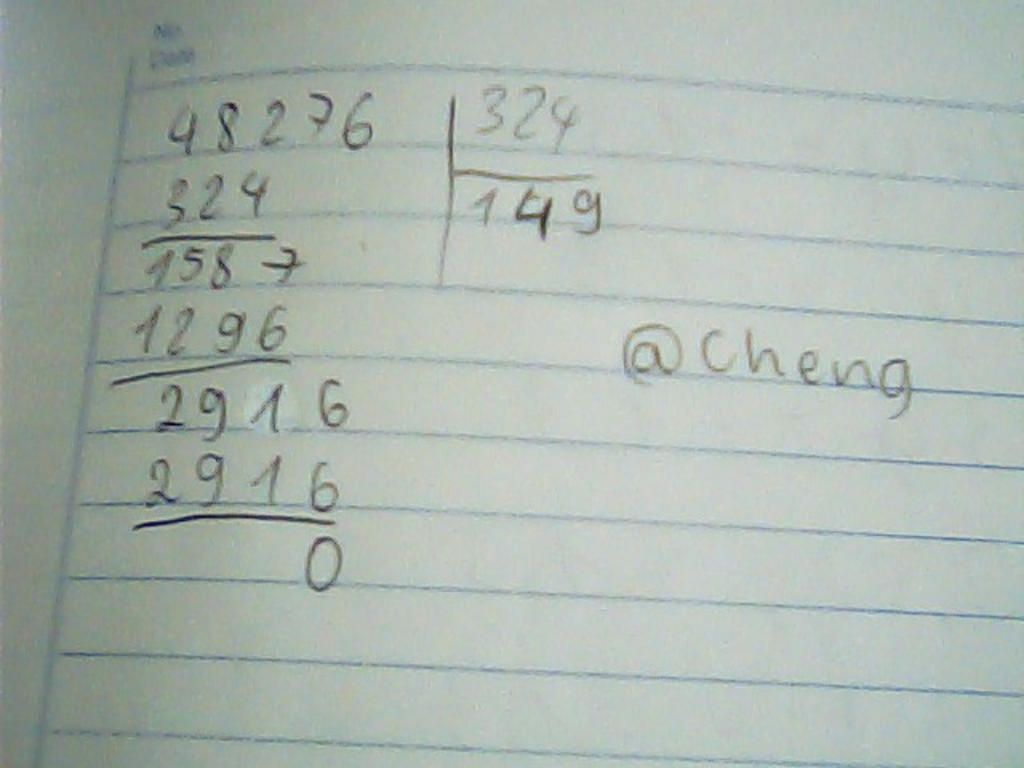 No.
Date
48276 324
324 149
1587
1296
@Cheng
2916
2916
0